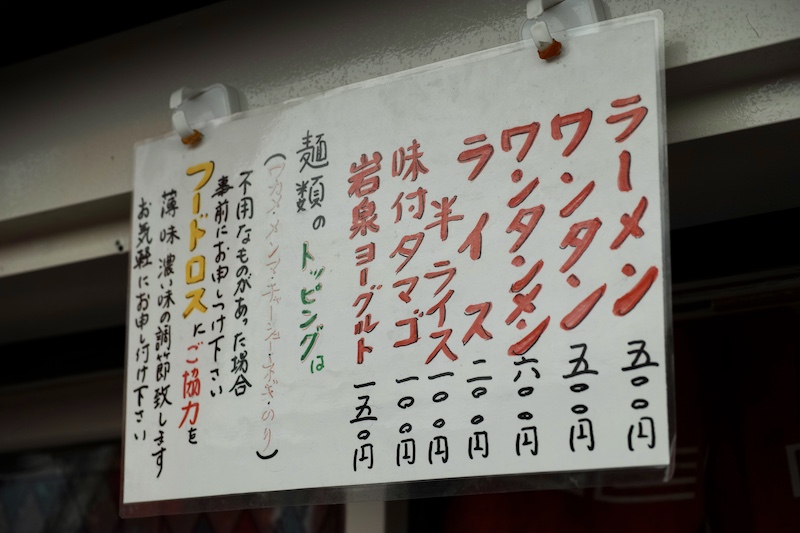 ラーメン 五〇〇円
ワンタン 五〇〇円
ワンタンメン 六〇〇円
ライス 二〇〇円
半ライス 一〇〇円
味付タマゴ 一〇〇円
岩泉ヨーグルト 一五〇円
麺類のトッピングは
(ワカメ・メンマ・チャーシュー・ネギ・のり)
不用なものがあった場合
事前にお申しつけ下さい
フードロスにご協力を
薄味 濃い味の調節致します
お気軽にお申し付け下さい